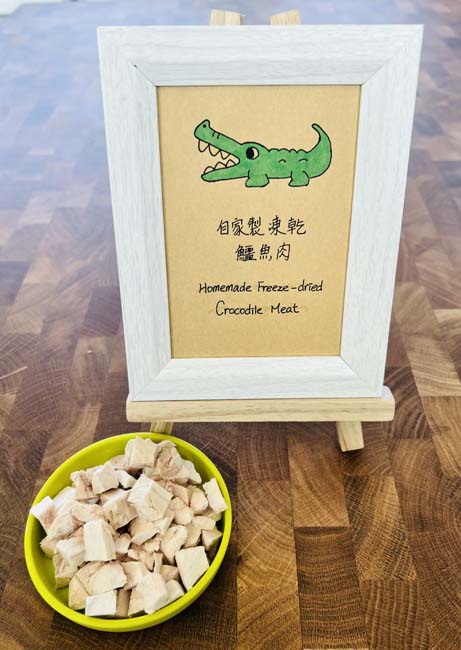 自家製凍乾
鱷魚肉
Homemade Freeze-dried
Crocodile Meat